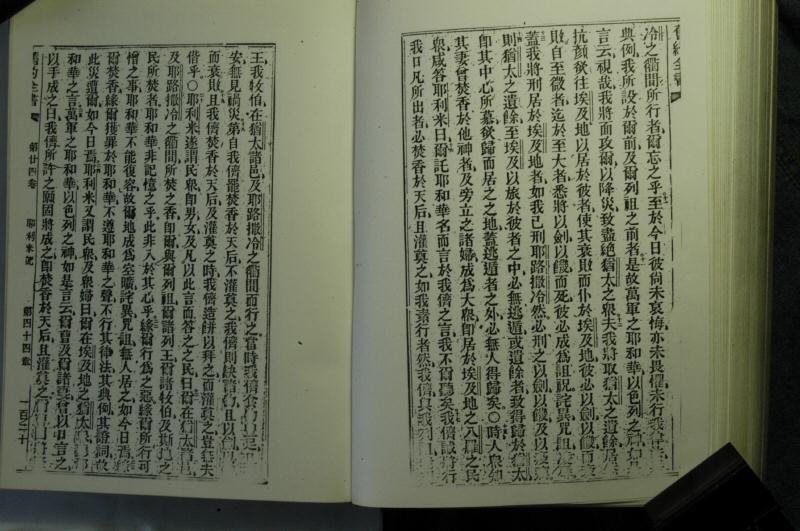 舊約全書
冷之衢間所行者爾忘之乎至於今日彼尚未哀悔亦未畏懼未行我律法
典例我所設於爾前及爾列祖之前者是故萬軍之耶和華以色列之神如
言云視哉我將面攻爾以降災致盡絕猶大之眾夫我將取猶大之遺餘居
抗顏欲往埃及地以居於彼者使其衰敗而仆於埃及地彼必以劍以饑而
敗自至微者迄於至大者悉將以劍以饑而死彼必成為詛祝詫異咒詛
蓋我將刑居於埃及地者如我已刑耶路撒冷然必刑之以劍以饑及以
則猶太之遺餘至埃及以旅於彼者之中必無逃遁或遺餘者致得歸於猶太
即其中心所慕欲歸而居之之地蓋逃遁者之外必無人得歸矣〇時人眾知
其妻曾焚香於他神者及旁立之諸婦成為大眾即居於埃及地之八羅之民
眾咸答耶利米曰爾託耶和華名而言於我儕之言我不爾聽矣我儕誠將行
我口凡所出者必焚香於天后且灌奠之如我素行者然我儕與我列祖
王我牧伯在猶太諸邑及耶路撒冷之衢間而行之當時我儕
安無見禍災第自我儕罷焚香於天后不灌奠之我儕則缺諸物且以
而衰敗且我儕焚香於天后及灌奠之時我儕造餅以拜之而灌奠之豈在夫
偕乎〇耶利米遂謂民眾即男女及凡以此言而答之之民曰爾在猶太諸邑
及耶路撒冷之衢間所焚之香即爾與爾列祖爾諸列王爾諸牧伯及斯地之
民所焚者耶和華非記憶之乎此非入於其心乎緣爾行為之惡緣爾所行可
憎之事耶和華不能復容故爾地成為空曠詫異咒詛無人居之如今日焉
爾焚香緣爾獲罪於耶和華不遵耶和華之聲不行其律法其典例其證詞故
此災遭爾如今日焉耶利米又謂民眾及眾婦曰爾在埃及地之
和華之言萬軍之耶和華以色列之神如是言云爾曹及爾諸妻曾以口言之
以手成之曰我儕所許之願固將成之即焚香於天后且灌奠之
舊約全書 第廿四卷 耶利米記 第四十四章 一百六十